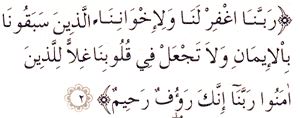 ﴿رَبَّنَا اغْفِرْ لَنَا وَلِإِخْوَانِنَاءِ الَّذِينَ سَبَقُونَا
بِالْإِيمَانِ وَلَا تَجْعَلْ فِي قُلُوبِنَا غِلاًّ لِلَّذِينَ
اٰمَنُوا رَبَّنَا إِنَّكَ رَؤُوفٌ رَحِيمٌ﴾ ٢